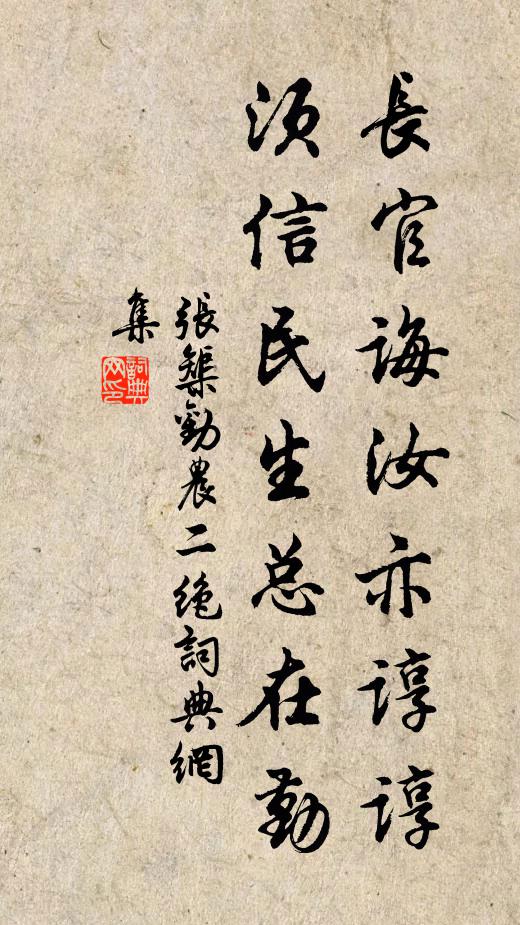 長官誨汝亦諄諄
须信民生总在勤
張榘勸農二绝詞典網
集
詞典網印